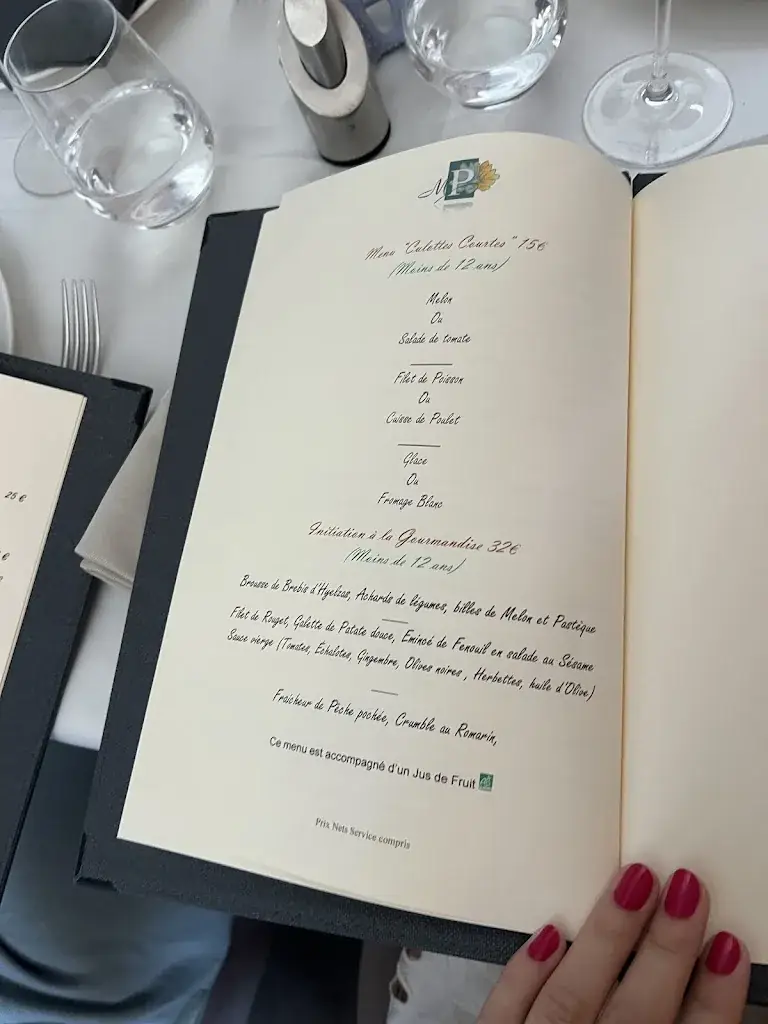 MP
Menu "Culottes Courtes" 15€
(Moins de 12 ans)
Melon
Ou
Salade de tomate
Filet de Poisson
Ou
Cuisse de Poulet
Glace
Ou
Fromage Blanc
Initiation à la Gourmandise 32€
(Moins de 12 ans)
Brousse de Brebis d'Hyelzas, Achards de légumes, billes de Melon et Pastèque
Filet de Rouget, Galette de Patate douce, Emincé de Fenouil en salade au Sésame
Sauce vierge (Tomates, Echalotes, Gingembre, Olives noires , Herbettes, huile d'Olive)
Fraicheur de Pêche pochée, Crumble au Romarin,
Ce menu est accompagné d'un Jus de Fruit AB
Prix Nets Service compris
25 €
€